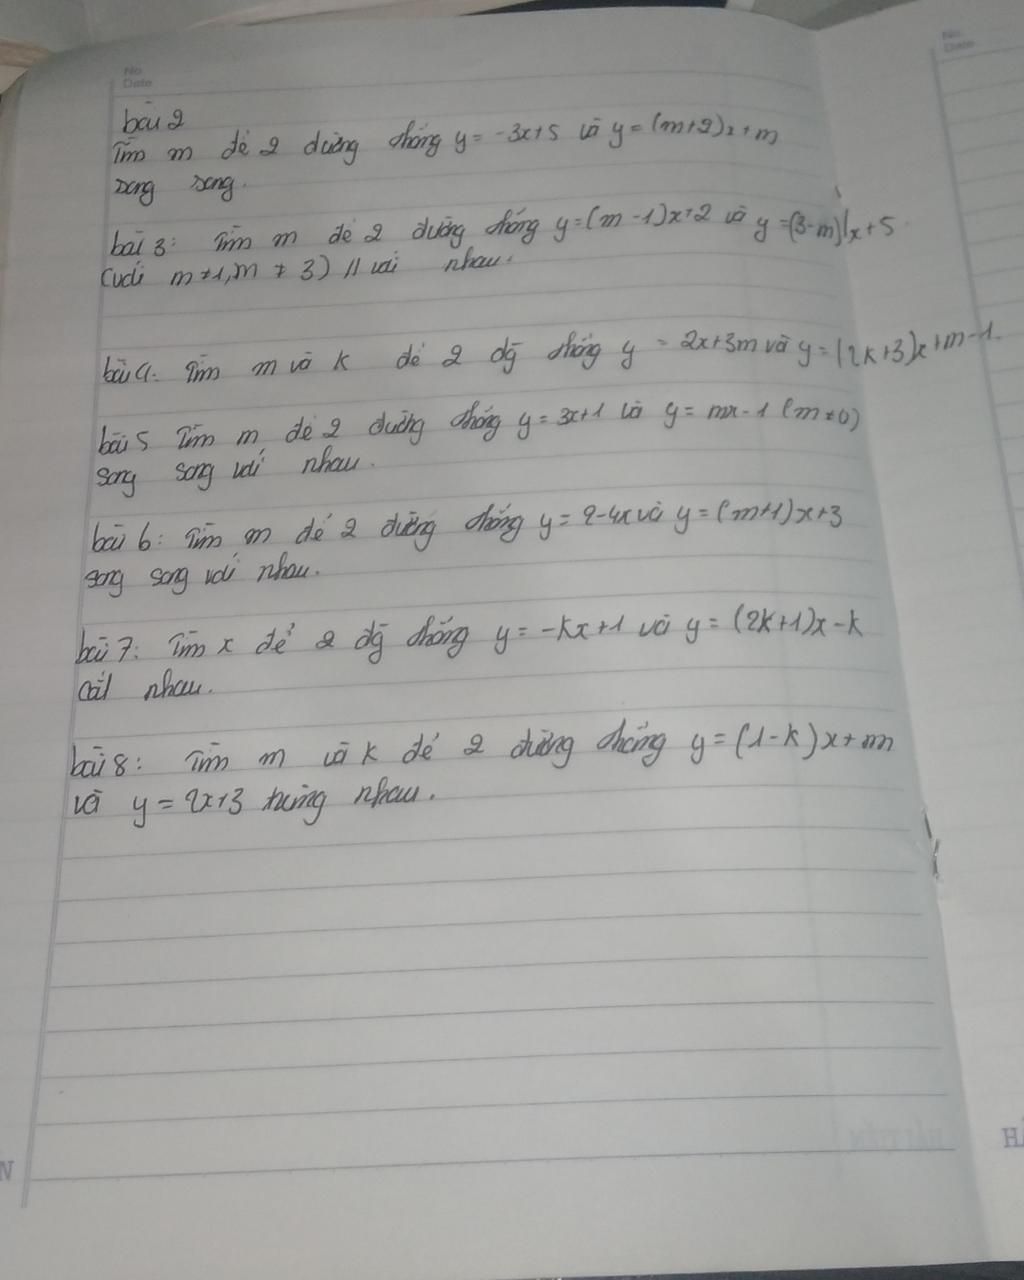 No.
Date
No.
Date
bài 2
Tìm m để 2 đường thẳng y = -3x+5 và y = (m+2)x+m
song song.
bài 3: Tìm m để 2 đường thẳng y=(m-1)x+2 và y=(3-m)x+5
(với m≠1, m≠3) // với nhau.
bài 4: Tìm m và k để 2 đg thẳng y = 2x+3m và y = (2k+3)x+m-1.
bài 5 Tìm m để 2 đường thẳng y = 3x+1 và y = mx-1 (m≠0)
song song với nhau.
bài 6: Tìm m để 2 đường thẳng y = 2-4x và y = (m+1)x+3
song song với nhau.
bài 7: Tìm x để 2 đg thẳng y = -kx+1 và y = (2k+1)x-k
cắt nhau.
bài 8: Tìm m và k để 2 đường thẳng y = (1-k)x+m
và y = 2x+3 trùng nhau.